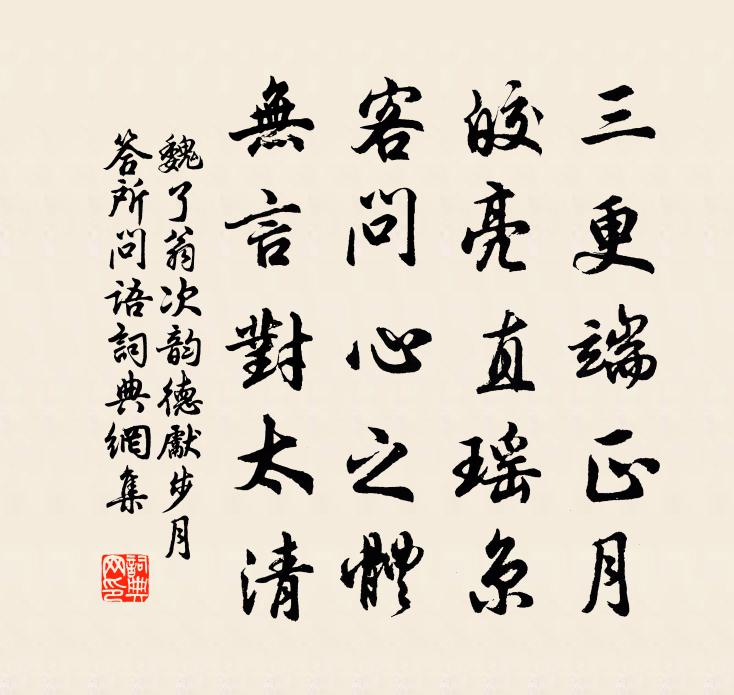 三更端正月
皎亮直瑶京
客問心之體
無言對太清
魏了翁次韵德獻步月
答所問語詞典網集
詞典网印